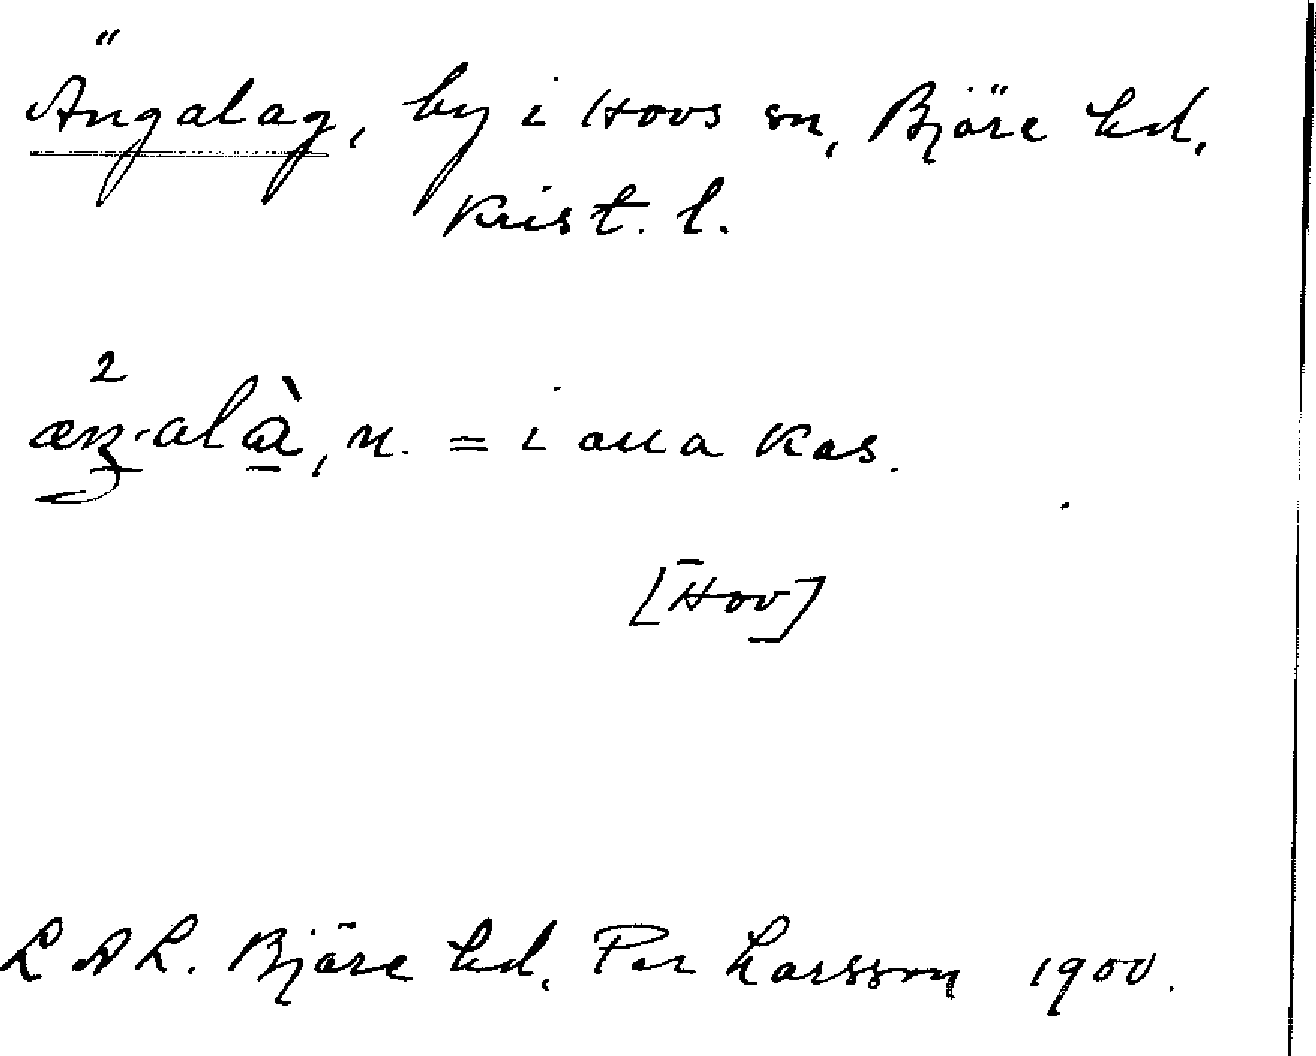 Ängalag, by i Hovs sn, Bjäre hd,
Krist. l.
2
æŋ·alà, n. = i alla kas.
[Hov]
L A L. Bjäre hd, Per Larsson 1900.